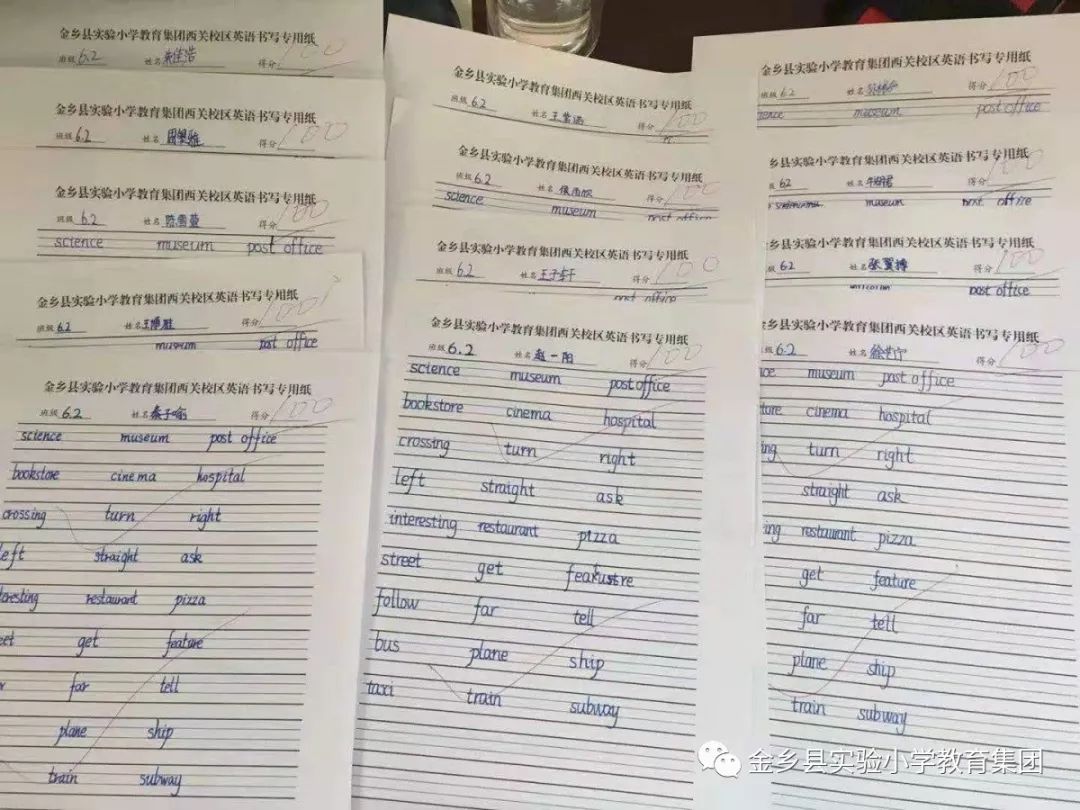 金乡县实验小学教育集团西关校区英语书写专用纸
班级 6.2 姓名 得分 100
金乡县实验小学教育集团西关校区英语书写专用纸
班级 6.2 姓名 得分 100
金乡县实验小学教育集团西关校区英语书写专用纸
班级 6.2 姓名 陈雪萱 得分 100
science museum post office
金乡县实验小学教育集团西关校区英语书写专用纸
班级 6.2 姓名 得分 100
museum post office
金乡县实验小学教育集团西关校区英语书写专用纸
班级 6.2 姓名 秦子喻 得分 100
science museum post office
bookstore cinema hospital
crossing turn right
left straight ask
teresting restaurant pizza
eet get feature
far tell
plane ship
train subway
金乡县实验小学教育集团西关校区英语书写专用纸
班级 6.2 姓名 王紫涵 得分 100
金乡县实验小学教育集团西关校区英语书写专用纸
班级 6.2 姓名 得分 100
science museum post office
金乡县实验小学教育集团西关校区英语书写专用纸
班级 6.2 姓名 王子轩 得分 100
post office
金乡县实验小学教育集团西关校区英语书写专用纸
班级 6.2 姓名 赵一阳 得分 100
science museum post office
bookstore cinema hospital
crossing turn right
left straight ask
interesting restaurant pizza
street get
follow far tell
bus plane ship
taxi train subway
金乡县实验小学教育集团西关校区英语书写专用纸
班级 6.2 姓名 得分 100
ience museum post office
乡县实验小学教育集团西关校区英语书写专用纸
级 6.2 姓名 得分 100
museum post office
乡县实验小学教育集团西关校区英语书写专用纸
级 6.2 姓名 张翼搏 得分 100
post office
县实验小学教育集团西关校区英语书写专用纸
级 6.2 姓名 得分 100
ce museum post office
tore cinema hospital
ing turn right
straight ask
ing restaurant pizza
get feature
far tell
plane ship
train subway
金乡县实验小学教育集团